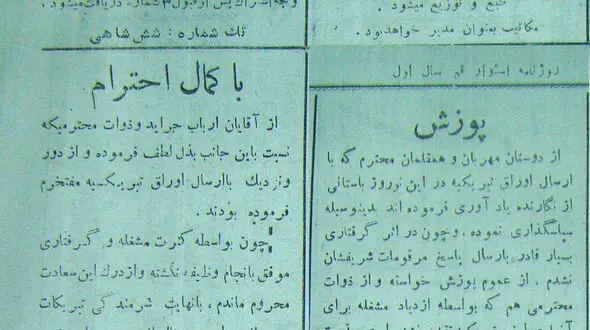 وجه اشتراك پس از قبول ۳ شماره دریافت میشود .
تك شماره : شش شاهی
با کمال احترام
از آقایان ارباب جراید وذوات محترمیکه
نسبت باین جانب بذل لطف فرموده و از دور
ونزدیك باارسال اوراق تبریکیه مفتخرم
فرموده بودند .
چون بواسطه کثرت مشغله و گرفتاری
موفق بانجام وظیفه نگشته وازدرك این سعادت
محروم ماندم ، بانهایت شرمند گی تبریکات
طبع و توزیع میشود .
مکاتیب بعنوان مدیر خواهدبود .
روزنامه استوار قم سال اول
پوزش
از دوستان مهربان و همقلمان محترم که با
ارسال اوراق تبریکیه در این نوروز باستانی
از نگارنده یاد آوری فرموده اند بدینوسیله
سپاسگذاری نموده ، وچون در اثر گرفتاری
بسیار قادر بارسال پاسخ مرقومات شریفشان
نشدم . از عموم پوزش خواسته و از ذوات
محترمی هم که بواسطه ازدیاد مشغله برای